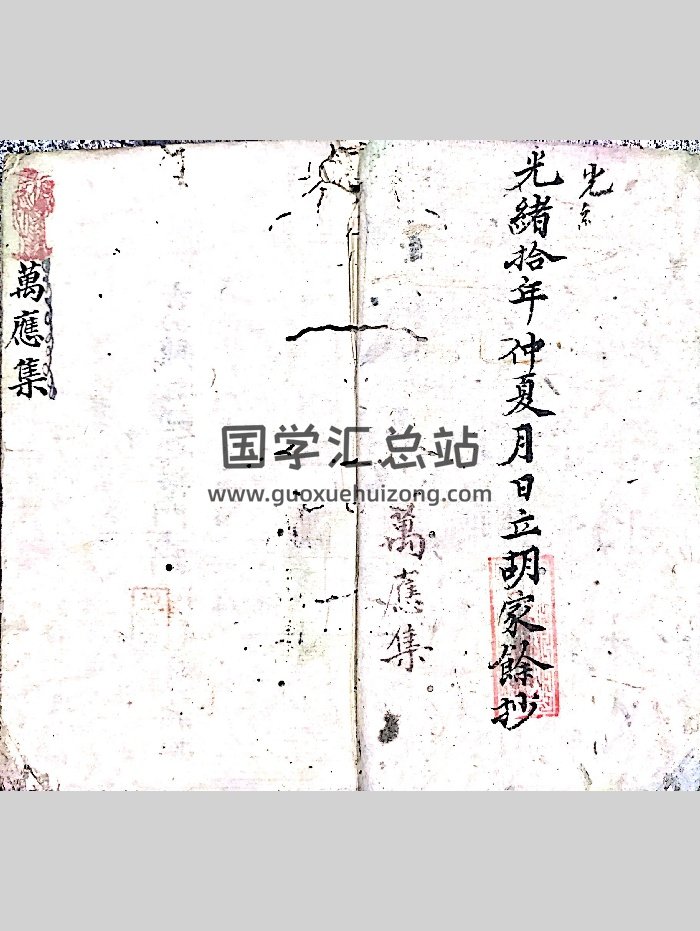 光
光緒拾年仲夏月日立胡家餘抄
萬應集
萬應集
国学汇总站
www.guoxuehuizong.com